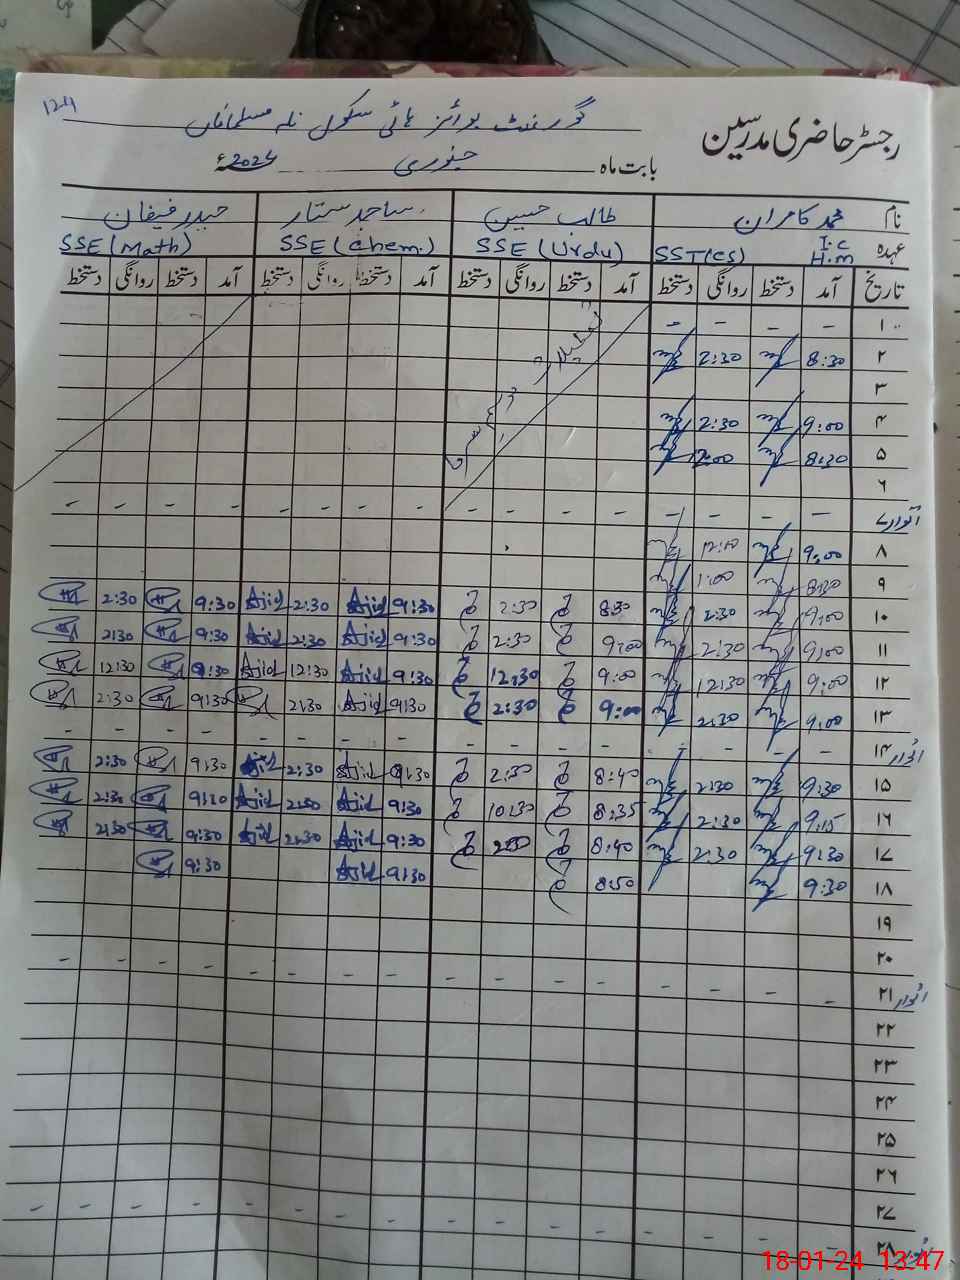 124
رجسٹر حاضری مدرسین
گورنمنٹ بوائز ہائی سکول نلہ مسلماناں
بابت ماہ جنوری 2024ء
نام محمد کامران طالب حسین ساجد ستار حیدر فیضان
عہدہ I.C H.M SST(CS) SSE (Urdu) SSE (Chem.) SSE (Math)
تاریخ آمد دستخط روانگی دستخط آمد دستخط روانگی دستخط آمد دستخط روانگی دستخط آمد دستخط روانگی دستخط
۱ - - - -
۲ 8:30 2:30
۳
۴ 9:00 2:30
۵ 8:30 12:00
۶
۷ اتوار - - - - - - - - - - - - - - - -
۸ 9:00 12:00
۹ 8:30 1:00
۱۰ 9:00 2:30 8:30 2:30 9:30 Ajid 2:30 Ajid 9:30 2:30
۱۱ 9:00 2:30 9:00 2:30 9:30 Ajid 2:30 Ajid 9:30 2:30
۱۲ 9:00 12:30 9:00 12:30 9:30 Ajid 12:30 Ajid 9:30 12:30
۱۳ 9:00 2:30 9:00 2:30 9:30 Ajid 2:30 9:30 2:30
۱۴ اتوار - - - - - - - - - - - - - - - -
۱۵ 9:30 2:30 8:40 2:30 9:30 Ajid 2:30 Ajid 9:30 2:30
۱۶ 9:15 2:30 8:35 10:30 9:30 Ajid 2:30 Ajid 9:30 2:30
۱۷ 9:30 2:30 8:40 2:30 9:30 Ajid 2:30 Ajid 9:30 2:30
۱۸ 9:30 8:50 9:30 Ajid 9:30
۱۹
۲۰
۲۱ اتوار - - - - - - - - - - - - - - - -
۲۲
۲۳
۲۴
۲۵
۲۶
۲۷
۲۸ اتوار - - - - - - - - - - - - - - - -
18-01-24 13:47